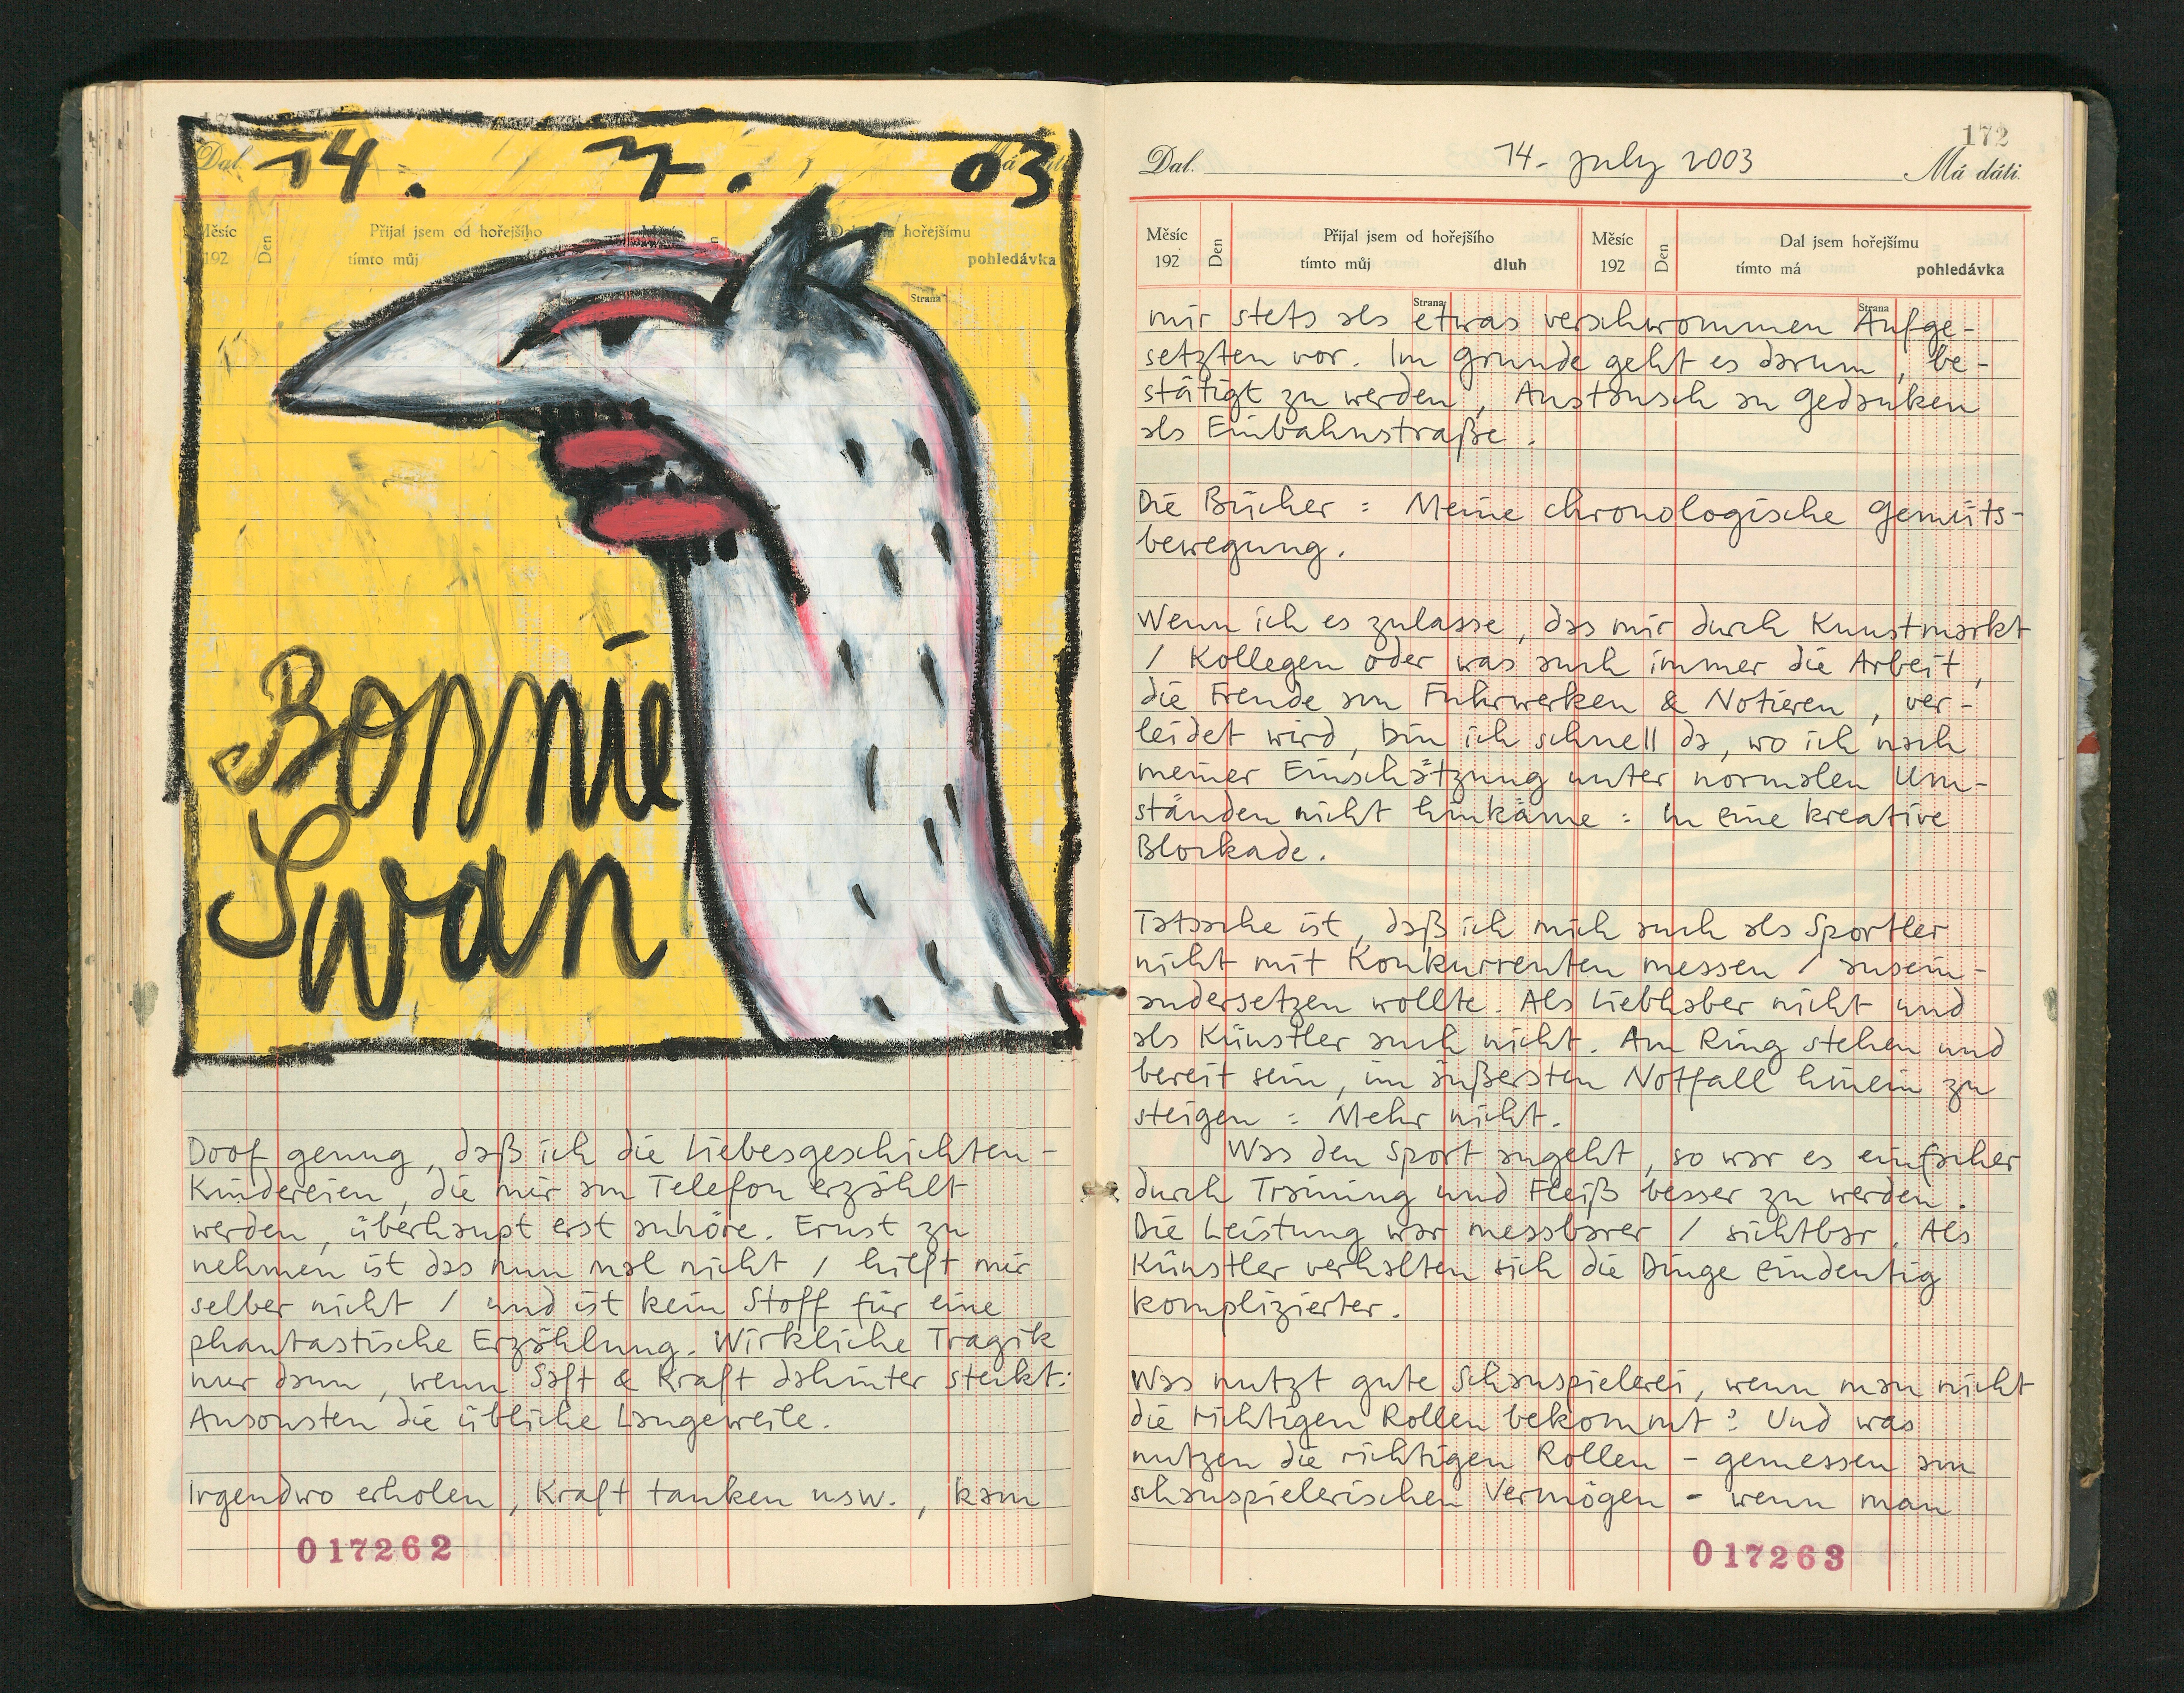 14. 7. 03
Dal.
Měsíc
192
Den
Přijal jsem od hořejšího
tímto můj
hořejšímu
pohledávka
Strana
Bonnie
Swan
Doof genug, daß ich die Liebesgeschichten-
Kindereien, die mir am Telefon erzählt
werden, überhaupt erst anhöre. Ernst zu
nehmen ist das nun mal nicht / hilft mir
selber nicht / und ist kein Stoff für eine
phantastische Erzählung. Wirkliche Tragik
nur dann, wenn Saft & Kraft dahinter steckt:
Ansonsten die übliche Langeweile.
Irgendwo erholen, Kraft tanken usw., kam
017262
172
Dal. 14. July 2003 Má dáti.
Měsíc
192
Den
Přijal jsem od hořejšího
tímto můj dluh
Měsíc
192
Den
Dal jsem hořejšímu
tímto má pohledávka
Strana
Strana
mir stets als etwas verschwommen Aufge-
setzten vor. Im Grunde geht es darum, be-
stätigt zu werden, Austausch an Gedanken
als Einbahnstraße.
Die Bücher: Meine chronologische Gemüts-
bewegung.
Wenn ich es zulasse, das mir durch Kunstmarkt
/ Kollegen oder was auch immer die Arbeit,
die Freude am Fuhrwerken & Notieren, ver-
leidet wird, bin ich schnell da, wo ich nach
meiner Einschätzung unter normalen Um-
ständen nicht hinkäme: In eine kreative
Blockade.
Tatsache ist, daß ich mich auch als Sportler
nicht mit Konkurrenten messen / ausein-
andersetzen wollte. Als Liebhaber nicht und
als Künstler auch nicht. Am Ring stehen und
bereit sein, im äußersten Notfall hinein zu
steigen: Mehr nicht.
Was den Sport angeht, so war es einfacher
durch Training und Fleiß besser zu werden.
Die Leistung war messbarer / sichtbar. Als
Künstler verhalten sich die Dinge eindeutig
komplizierter.
Was nutzt gute Schauspielerei, wenn man nicht
die richtigen Rollen bekommt? Und was
nutzen die richtigen Rollen - gemessen am
schauspielerischen Vermögen - wenn man
017263